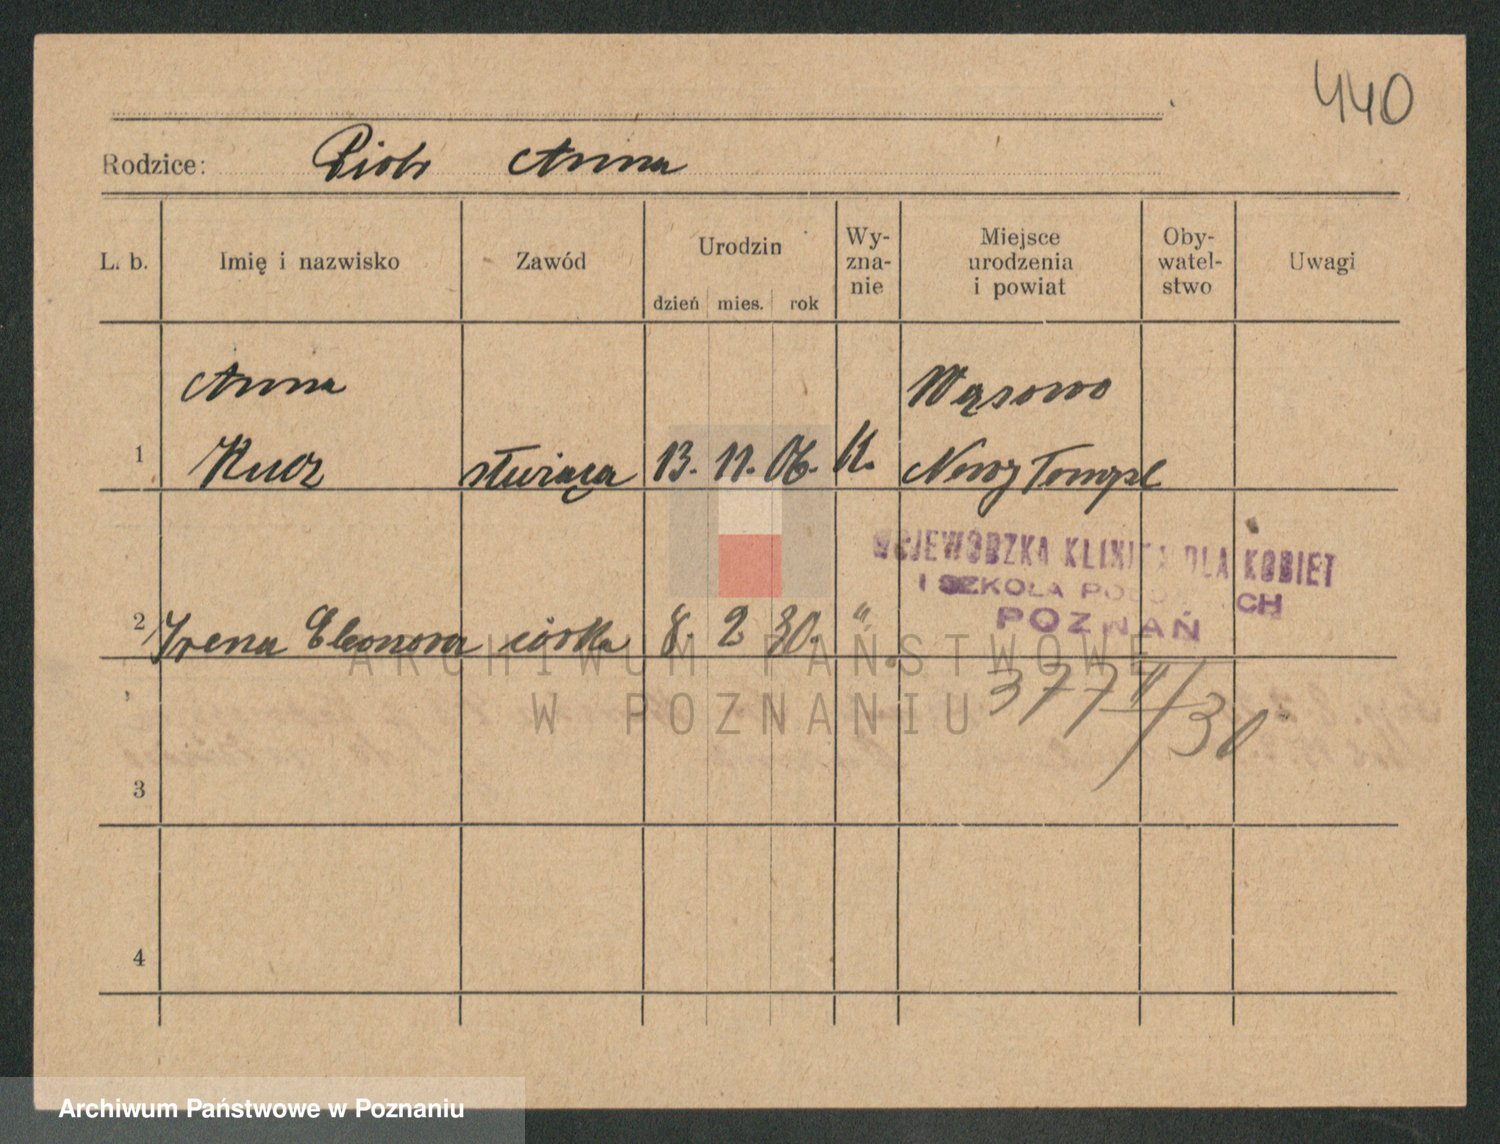 440
Rodzice: Piotr Anna
L. b. Imię i nazwisko Zawód Urodzin dzień mies. rok Wy-zna-nie Miejsce urodzenia i powiat Oby-watel-stwo Uwagi
Anna Wąsowo
1 Kucz służąca 13. 11. 06. K. Nowy Tomyśl
WOJEWÓDZKA KLINIKA DLA KOBIET
I SZKOŁA
POZNAŃ
2 Irena Eleonora córka 8. 2. 30. "
ARCHIWUM PAŃSTWOWE
W POZNANIU
377 II/30
3
4
Archiwum Państwowe w Poznaniu